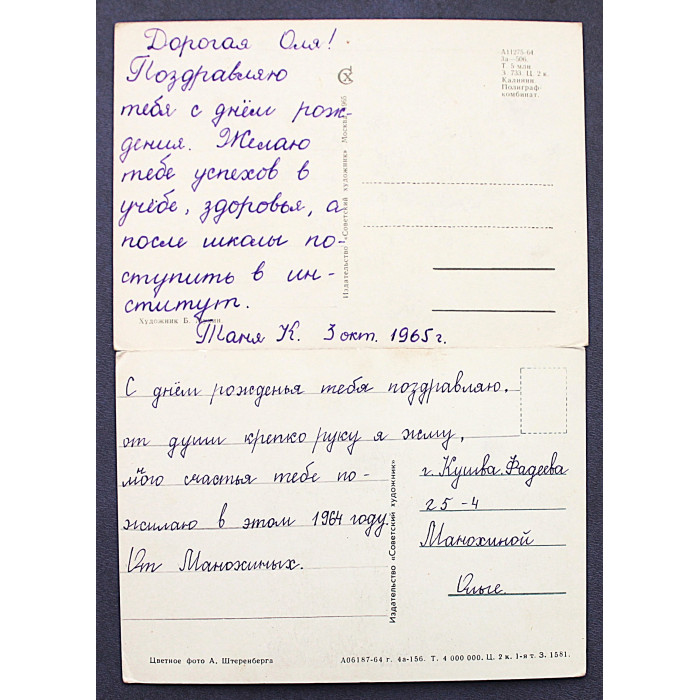 Дорогая Оля!
Поздравляю
тебя с днём рож-
дения. Желаю
тебе успехов в
учёбе, здоровья, а
после школы по-
ступить в ин-
ститут.
Таня К. 3 окт. 1965 г.
Художник Б.
Издательство «Советский художник» Москва 1965
А11275-64
За—506.
Т. 5 млн
З. 733. Ц. 2 к.
Калинин
Полиграф-
комбинат.
С днём рожденья тебя поздравляю.
от души крепко руку я жму,
много счастья тебе по-
жилаю в этом 1964 году.
От Манохиных.
Издательство «Советский художник»
г. Кушва. Фадеева
25-4
Манохиной
Ольге.
Цветное фото А. Штеренберга
А06187-64 г. 4а-156. Т. 4 000 000. Ц. 2 к. 1-я т. З. 1581.